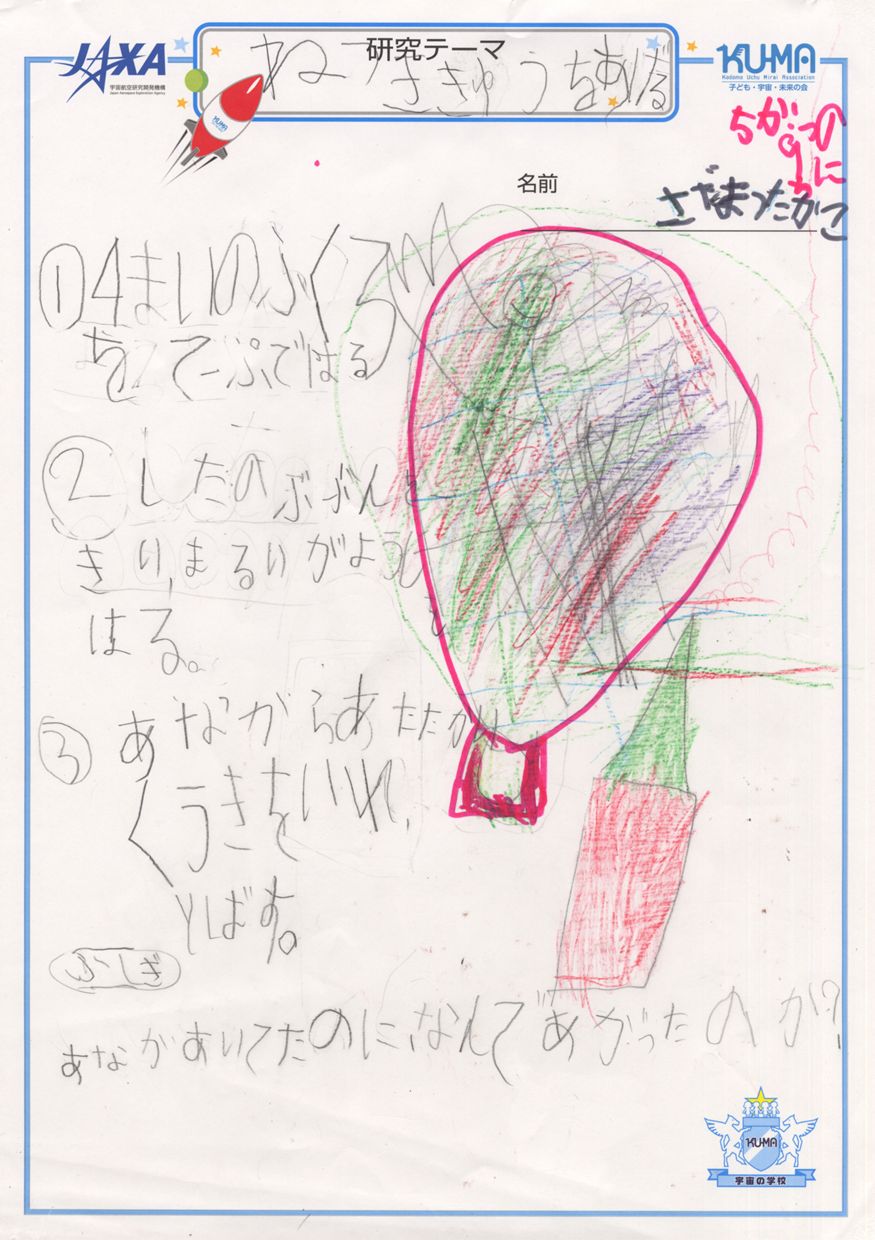 JAXA
宇宙航空研究開発機構
Japan Aerospace Exploration Agency
研究テーマ
ねつききゅうをあげる
KU-MA
Kodomo Uchu Mirai Association
子ども・宇宙・未来の会
KU-MA
名前
①4まいのふくろ
をてーぷではる
②したのぶぶんを
きり、まるいがようしを
はる。
③あながらあたたかい
くうきをいれ、
とばす。
ふしぎ
あながあいてたのになんであがったのか？
KU-MA
宇宙の学校